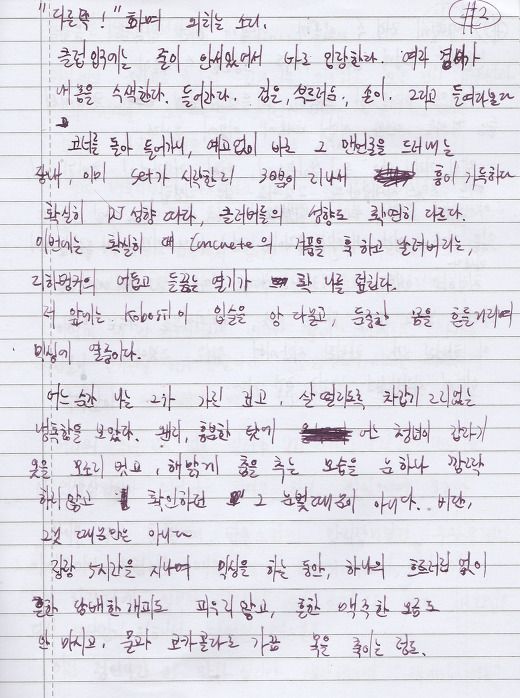 #2
"다른쪽!" 하며 외치는 소리.
클럽 입구에는 줄이 안서있어서 바로 입장한다. 여자 경비가
내 몸을 수색한다. 들어간다. 검은, 부르러운, 손이. 그리고 들여다본다
코너를 돌아 들어가니, 예고없이 바로 그 맨얼굴을 드러내는
장내, 이미 Set가 시작한지 30분이 지나서 흥이 가득하다
확실히 DJ 성향 따라, 클러버들의 성향도 확연히 다르다.
이번에는 확실히 예 Concrete의 거품을 훅 하고 날려버리는,
지하벙커의 어둡고 들끓는 열기가 확 나를 덮친다.
저 앞에는 Kobosil이 입술을 앙 다물고, 둔중한 몸을 흔들거리며
믹싱에 열중이다.
어느 순간 나는 그가 가진 깊고, 살 떨리도록 차갑기 그지없는
냉혹함을 보았다. 왠지, 흥분한 탓에 어느 청년이 갑자기
옷을 모조리 벗고, 해맑게 춤을 추는 모습을 눈하나 깜짝
하지 않고 확인하던 그 눈빛때문이 아니다. 비단,
그것 때문만은 아니다
장장 5시간을 지나며 믹싱을 하는 동안, 하나의 흐트러짐 없이
흔한 담배한개피도 피우지 않고, 흔한 맥주한 모금도
안 마시고, 물과 코카콜라로 가끔 목을 축이는 정도.